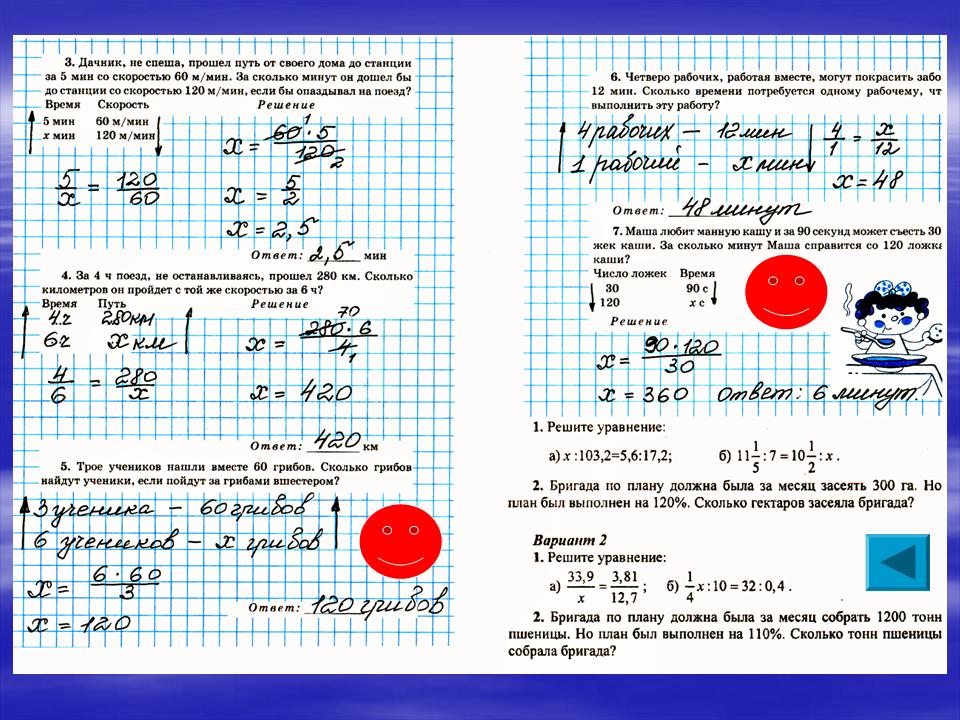 3. Дачник, не спеша, прошел путь от своего дома до станции
за 5 мин со скоростью 60 м/мин. За сколько минут он дошел бы
до станции со скоростью 120 м/мин, если бы опаздывал на поезд?
Время Скорость Решение
5 мин 60 м/мин
x мин 120 м/мин
5/x = 120/60
x = 60·5/120
1
2
x = 5/2
x = 2,5
Ответ: 2,5 мин
4. За 4 ч поезд, не останавливаясь, прошел 280 км. Сколько
километров он пройдет с той же скоростью за 6 ч?
Время Путь Решение
4ч 280км
6ч x км
4/6 = 280/x
x = 280·6/4
70
1
x = 420
Ответ: 420 км
5. Трое учеников нашли вместе 60 грибов. Сколько грибов
найдут ученики, если пойдут за грибами вшестером?
3 ученика – 60 грибов
6 учеников – x грибов
x = 6·60/3
x = 120
Ответ: 120 грибов
6. Четверо рабочих, работая вместе, могут покрасить забо
12 мин. Сколько времени потребуется одному рабочему, чт
выполнить эту работу?
4 рабочих – 12 мин
1 рабочий – x мин
4/1 = x/12
x = 48
Ответ: 48 минут
7. Маша любит манную кашу и за 90 секунд может съесть 30
жек каши. За сколько минут Маша справится со 120 ложка
каши?
Число ложек Время
30 90 с
120 x с
Решение
x = 90·120/30
x = 360 Ответ: 6 минут.
1. Решите уравнение:
а) x :103,2=5,6:17,2; б) 11 1/5 : 7 = 10 1/2 : x .
2. Бригада по плану должна была за месяц засеять 300 га. Но
план был выполнен на 120%. Сколько гектаров засеяла бригада?
Вариант 2
1. Решите уравнение:
а) 33,9/x = 3,81/12,7 ; б) 1/4 x : 10 = 32 : 0,4 .
2. Бригада по плану должна была за месяц собрать 1200 тонн
пшеницы. Но план был выполнен на 110%. Сколько тонн пшеницы
собрала бригада?